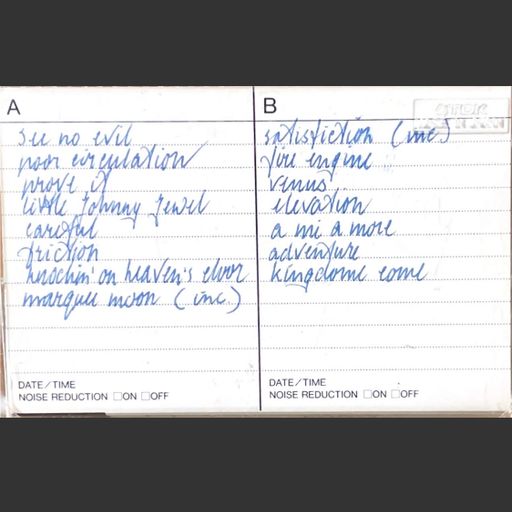 A
see no evil
poor circulation
prove it
little Johnny Jewel
careful
friction
knockin' on heaven's door
marquee moon (inc.)
DATE/TIME
NOISE REDUCTION □ON □OFF
B
satisfiction (inc)
fire engine
venus
elevation
a mi a more
adventure
kingdome come
DATE/TIME
NOISE REDUCTION □ON □OFF